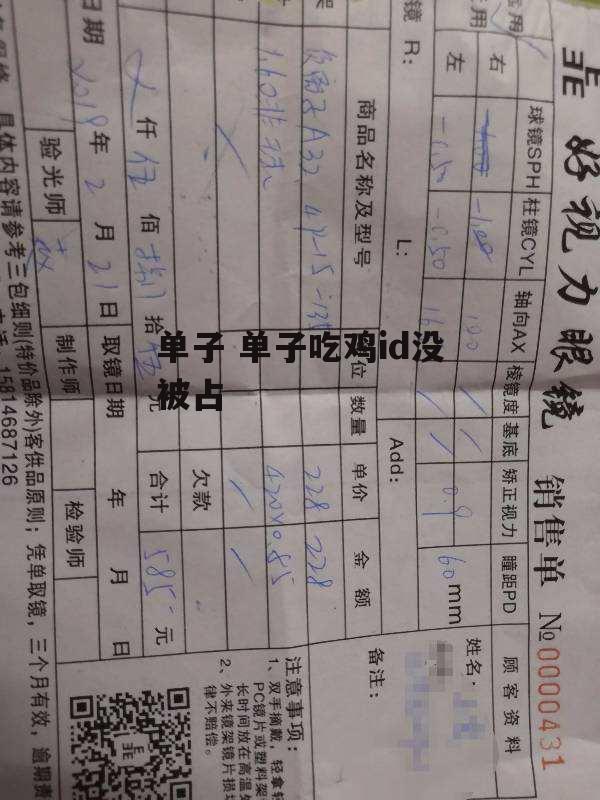 好视力眼镜 销售单 №0000431
球镜SPH 柱镜CYL 轴向AX 棱镜度 基底 矫正视力 瞳距PD
顾客资料
右 -1.00 100 / /
左 -0.50 -0.50 / / 0.9 60mm
姓名:
镜 R: L: Add:
备注:
商品名称及型号 位 数量 单价 金额
A33 47-15-13 228 228
1.60非球 420×0.85
欠款
仟 伍 佰 捌 拾 伍 元 合计 585 元
日期 2019年2月21日 取镜日期 年 月 日
验光师 制作师 检验师
具体内容请参考三包细则(特价品除外)客供品原则;凭单取镜,三个月有效,逾期责
15814687126
注意事项:
1、双手摘戴,轻拿轻
PC镜片或塑料架
长时间放在高温
2、外来镜架镜片损
律不赔偿。
单子 单子吃鸡id没
被占